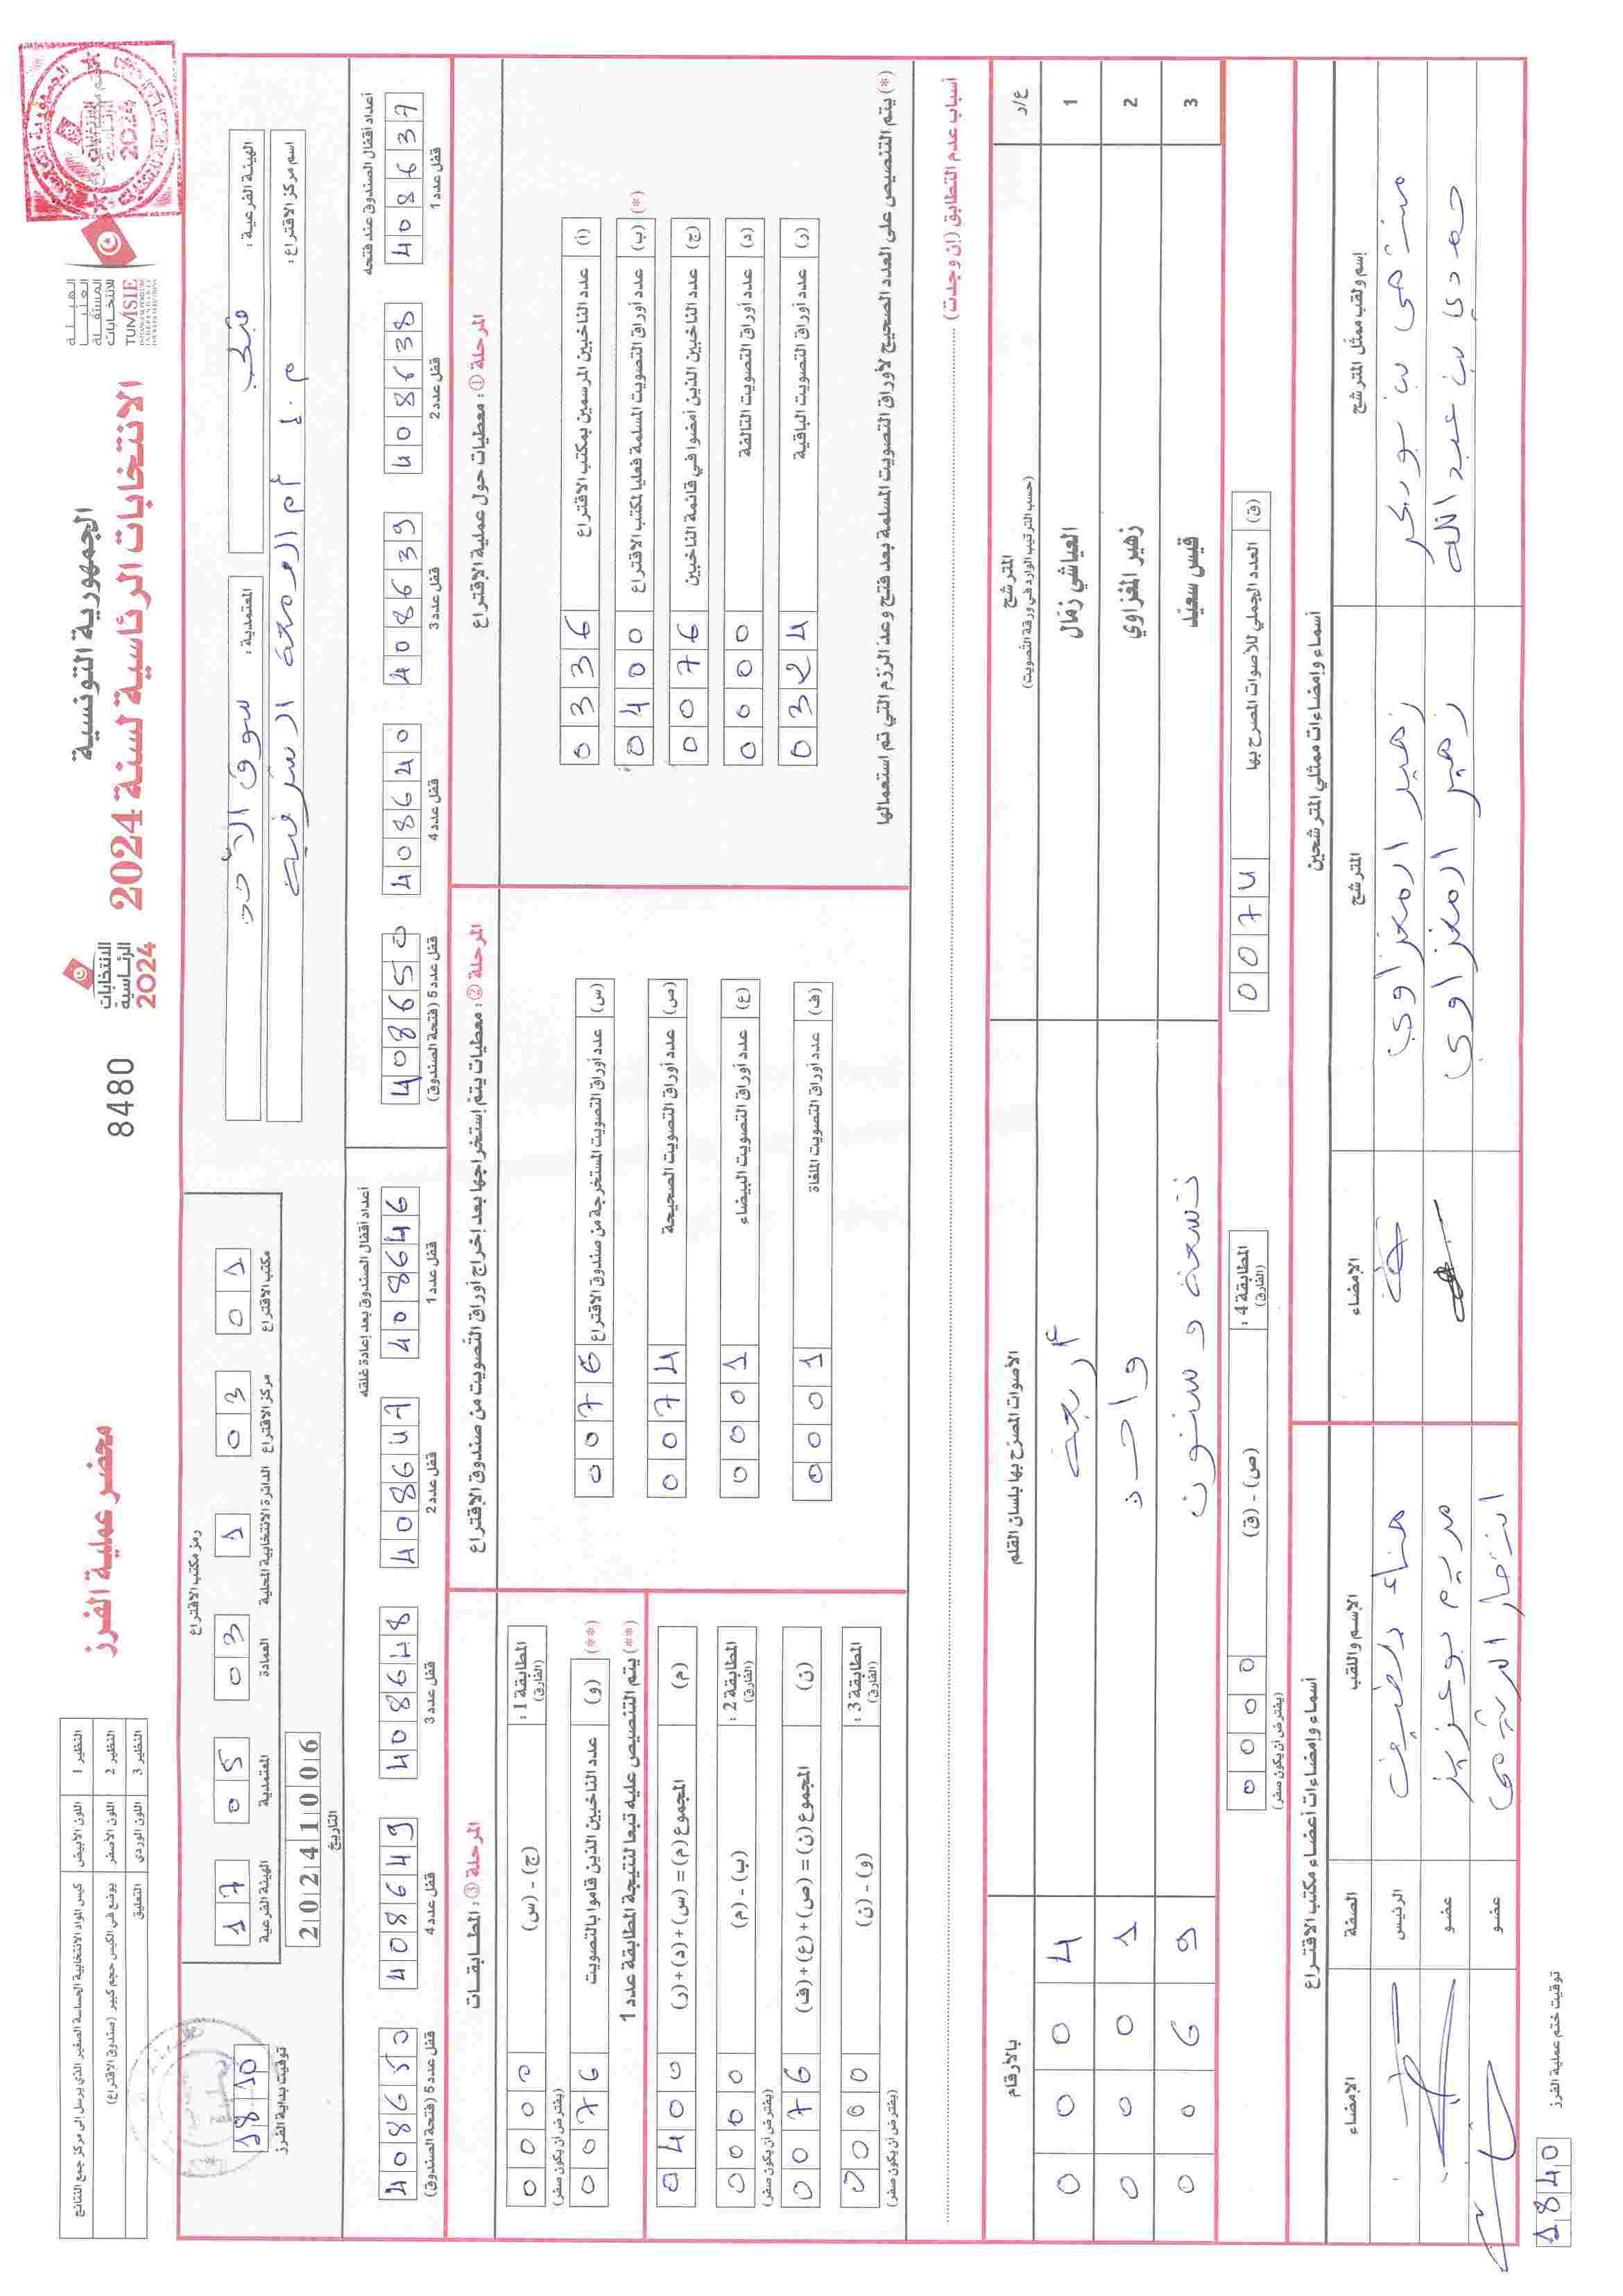 الجمهورية التونسية
الانتخابات الرئاسية لسنة 2024
الهيئة العليا المستقلة للانتخابات
TUNISIE
الانتخابات الرئاسية 2024
8480
محضر عملية الفرز
النظير 1 اللون الأبيض كيس المواد الانتخابية الحساسة الصغير الذي يرسل إلى مركز جمع النتائج
النظير 2 اللون الأصفر يوضع في الكيس حجم كبير (صندوق الاقتراع)
النظير 3 اللون الوردي التعليق
الهيئة الفرعية : قبلي
المعتمدية : سوق الأحد
اسم مركز الاقتراع : م. إ أم الصمعة الشرقية
رمز مكتب الاقتراع
17 05 03 1 03 01
الهيئة الفرعية المعتمدية العمادة الدائرة الانتخابية المحلية مركز الاقتراع مكتب الاقتراع
التاريخ
20241006
توقيت بداية الفرز
1810
أعداد أقفال الصندوق عند فتحه
408637 قفل عدد 1
408638 قفل عدد 2
408639 قفل عدد 3
408640 قفل عدد 4
408650 قفل عدد 5 (فتحة الصندوق)
أعداد أقفال الصندوق بعد إعادة غلقه
408646 قفل عدد 1
408647 قفل عدد 2
408648 قفل عدد 3
408649 قفل عدد 4
408650 قفل عدد 5 (فتحة الصندوق)
المرحلة ① : معطيات حول عملية الإقتراع
(أ) عدد الناخبين المرسمين بمكتب الاقتراع 0336
(ب) عدد أوراق التصويت المسلمة فعليا لمكتب الاقتراع 0400 (*)
(ج) عدد الناخبين الذين أمضوا في قائمة الناخبين 0076
(د) عدد أوراق التصويت التالفة 0000
(ر) عدد أوراق التصويت الباقية 0324
(*) يتم التنصيص على العدد الصحيح لأوراق التصويت المسلمة بعد فتح وعد الرزم التي تم استعمالها
المرحلة ② : معطيات يتم إستخراجها بعد إخراج أوراق التصويت من صندوق الإقتراع
(س) عدد أوراق التصويت المستخرجة من صندوق الاقتراع 0076
(ص) عدد أوراق التصويت الصحيحة 0074
(ع) عدد أوراق التصويت البيضاء 0001
(ف) عدد أوراق التصويت الملغاة 0001
المرحلة ③ : المطابقات
المطابقة 1 : (الفارق) (ج) - (س) 0000
(يفترض أن يكون صفر)
(**) (و) عدد الناخبين الذين قاموا بالتصويت 0076
(**) يتم التنصيص عليه تبعا لنتيجة المطابقة عدد 1
(م) المجموع (م) = (س) + (د) + (ر) 0400
المطابقة 2 : (الفارق) (ب) - (م) 0000
(يفترض أن يكون صفر)
(ن) المجموع (ن) = (ص) + (ع) + (ف) 0076
المطابقة 3 : (الفارق) (و) - (ن) 0000
(يفترض أن يكون صفر)
أسباب عدم التطابق (إن وجدت)
ع/د المترشح (حسب الترتيب الوارد في ورقة التصويت) الأصوات المصرّح بها بلسان القلم بالأرقام
1 العياشي زمّال أربعة 0004
2 زهير المغزاوي واحد 0001
3 قيس سعيّد تسعة وستون 0069
(ق) العدد الجملي للأصوات المصرح بها 0074
المطابقة 4 : (الفارق) (ص) - (ق) 0000
(يفترض أن يكون صفر)
أسماء وإمضاءات ممثلي المترشحين
إسم ولقب ممثل المترشح المترشح الإمضاء
زهير المغزاوي
حمدي بن عبد الله زهير المغزاوي
أسماء وإمضاءات أعضاء مكتب الاقتراع
الإسم واللقب الصفة الإمضاء
الرئيس
مريم بوعزيز عضو
عضو
توقيت ختم عملية الفرز
1840